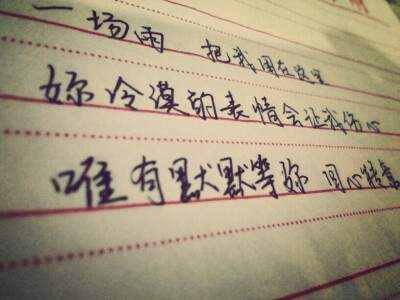 一场雨 把我困在这里
妳冷漠的表情会让我伤心
唯有默默等妳 回心转意